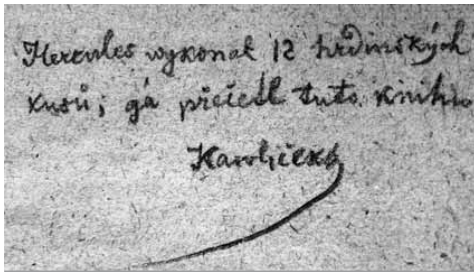 Hercules wykonal 12 hrdinských
kusů; gá přečetl tuto knihu
Kawljček